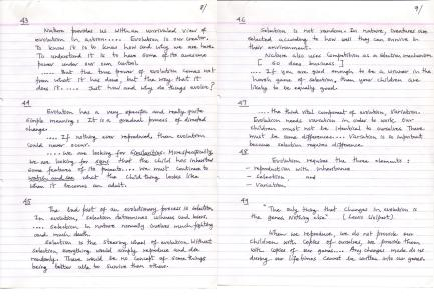 8/
43
Nature provides us with an unrivaled view of
evolution in action..... Evolution is our creator.
To know it is to know how and why we are here.
To understand it is to have some of its awesome
power under our own control.
.... But the true power of evolution comes not
from what it has done, but the way that it
does it..... Just how and why do things evolve?
44
Evolution has a very specific and really quite
simple meaning: It is a gradual process of directed
change.
.... If nothing ever reproduced, then evolution
could never occur.
.... we are looking for similarities. More specifically,
we are looking for signs that the child has inherited
some features of its parents.... We must continue to
watch and see what the child thing looks like
when it becomes an adult.
45
The last part of an evolutionary process is selection.
In evolution, selection determines winners and losers.
.... Selection in nature normally involves much fighting
and much death.
Selection is the steering wheel of evolution. Without
selection everything would simply reproduce and die
randomly. There would be no concept of some things
being better able to survive than others.
9/
46
Selection is not random. In nature, creatures are
selected according to how well they can survive in
their environment.
Nature also uses Competition as a selection mechanism
[ So does business ]
.... If you are good enough to be a winner in the
harsh game of selection, then your children are
likely to be equally good.
47
.... the third vital component of evolution, Variation.
Evolution needs variation in order to work. Our
children must not be identical to ourselves. There
must be some differences.... Variation is important
because selection requires difference.
48
Evolution requires the three elements:
- reproduction with inheritance
- selection and
- variation.
49
"The only thing that changes in evolution is
the genes. Nothing else" (Lewis Wolpert).
When we reproduce, we do not provide our
children with copies of ourselves, we provide them
with copies of our genes.... Any changes made to us
during our lifetimes cannot be written into our genes.